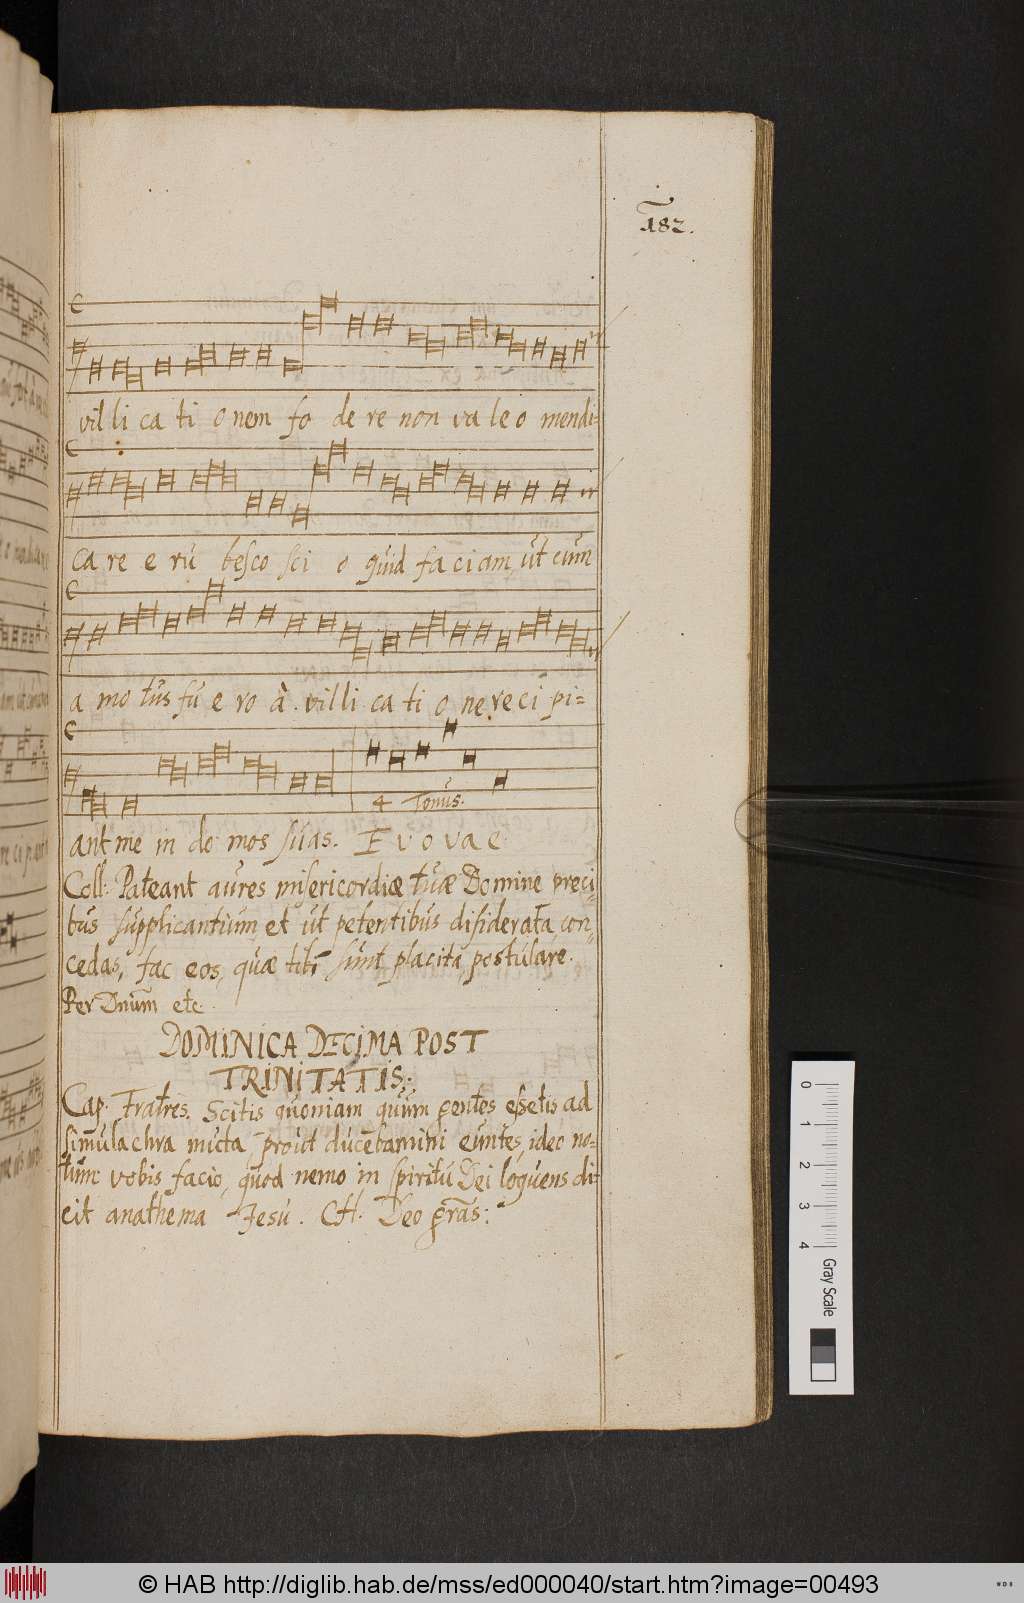 182.
villi ca ti onem fo de re non va le o mendi-
ca re e ru besco sci o quid faciam, ut cum
a mo tus fu e ro à villi ca ti o ne reci pi=
4 Tonus.
ant me in do mos suas. E v o v a e
Coll: Pateant aures misericordiæ tuæ Domine preci-
bus supplicantium, et ut petentibus disiderata con-
cedas, fac eos, quæ tibi sunt placita, postulare.
Per Dnum etc.
DOMINICA DECIMA POST
TRINITATIS;
Cap. Fratres. Scitis quoniam quum gentes essetis ad
simulachra muta, prout ducebamini euntes, ideo no-
tum vobis facio, quod nemo in spiritu Dei loquens di-
cit anathema Jesu. CH. Deo gras:
0 1 2 3 4 Gray Scale
© HAB http://diglib.hab.de/mss/ed000040/start.htm?image=00493